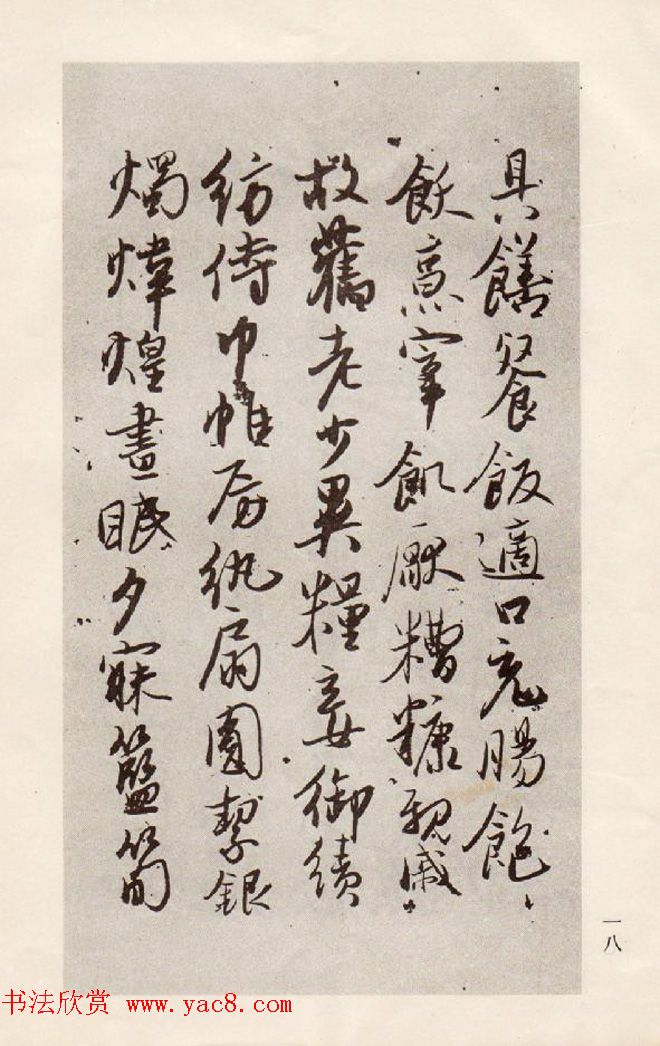 具膳飡飯適口充腸飽
飫烹宰飢厭糟糠親戚
故舊老少異糧妾御績
紡侍巾帷房紈扇圓絜銀
燭煒煌晝眠夕寐籃笋
一八
书法欣赏 www.yac8.com